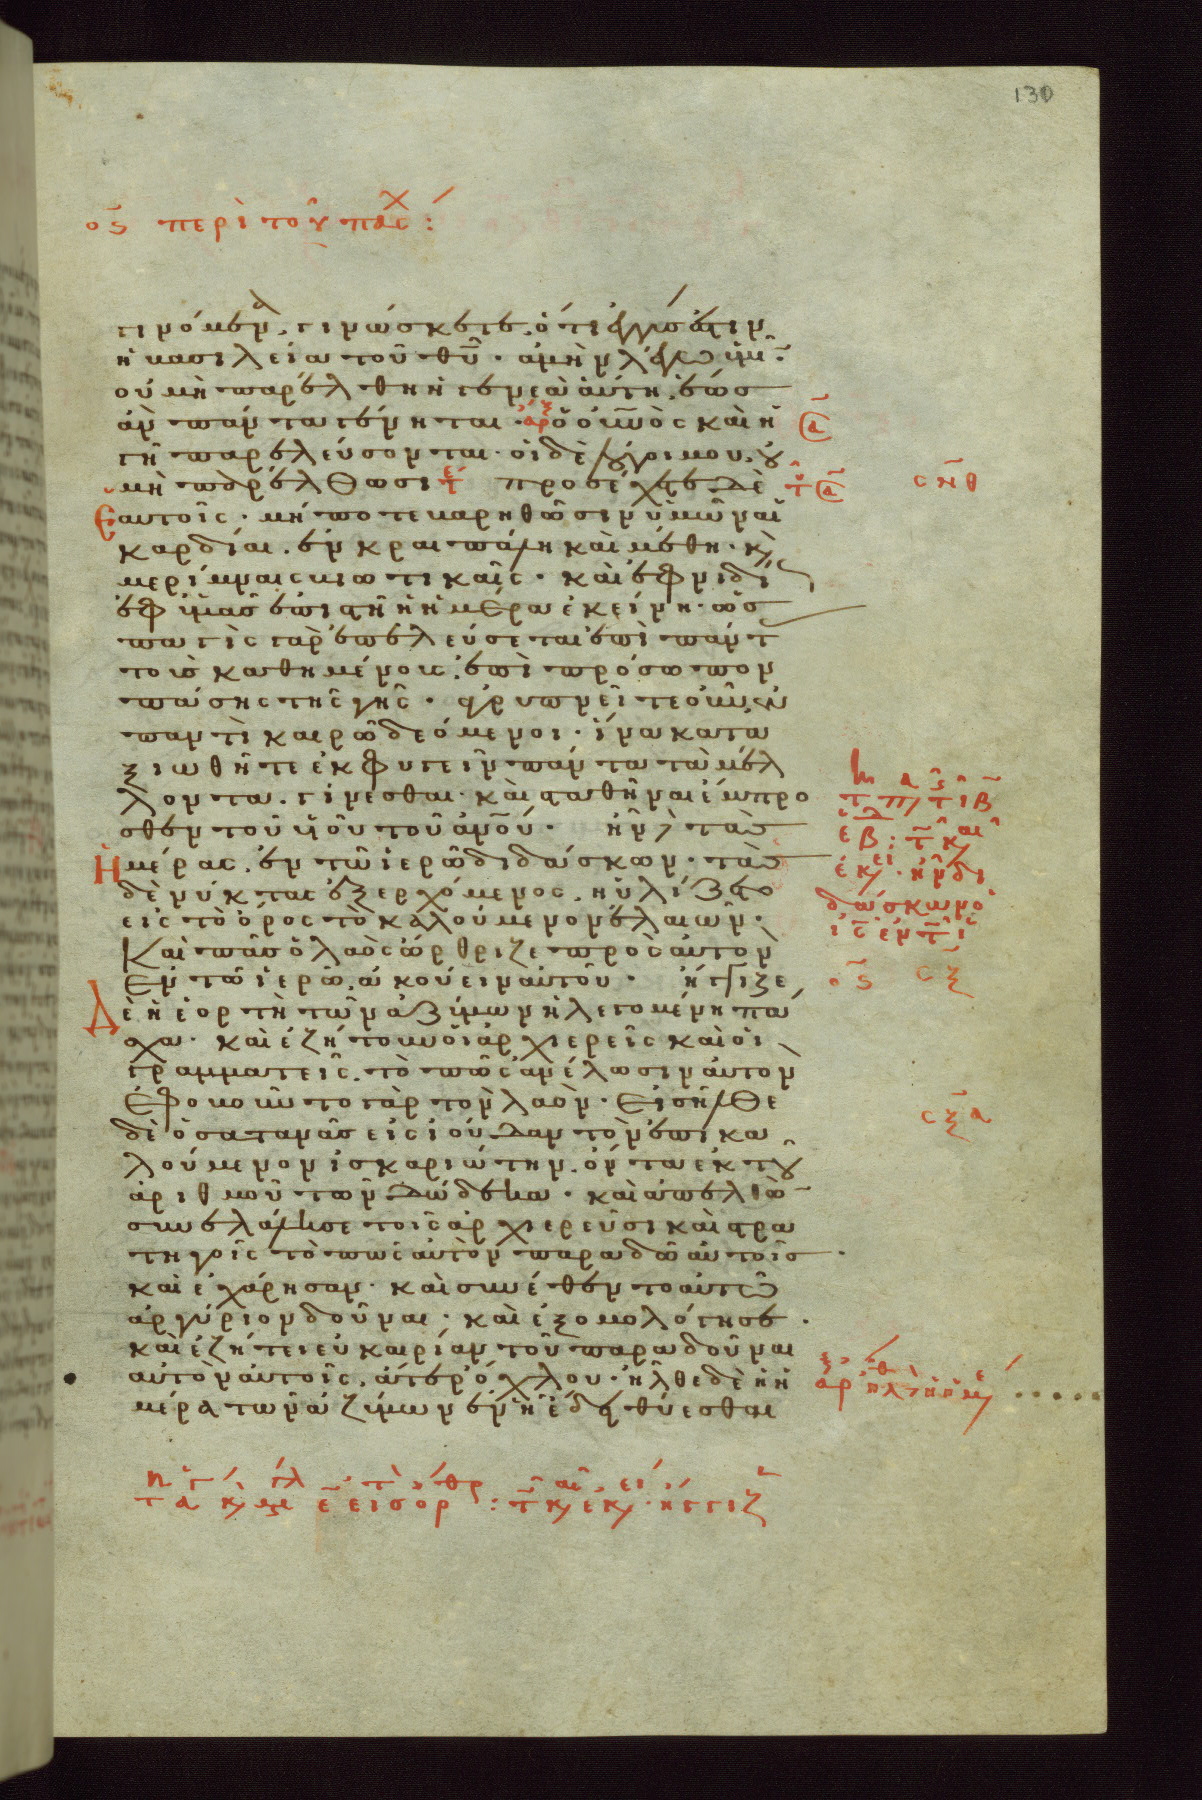 130
οϛ̄ περὶ τοῦ πάσχ :
γινόμενα. γινώσκετε. ὅτι ἐγγύς ἐστιν
ἡ βασιλεία τοῦ θῦ· ἀμὴν λέγω ὑμῖν·
οὐ μὴ παρέλθη ἡ γενεὰ αὕτη. ἕως
ἂν πάντα γένηται· ἀρξ ὁ οὐνὸς καὶ ἡ
γῆ παρελεύσονται· οἱ δὲ λόγοι μου. οὐ
μὴ παρέλθωσι τε προσέχετε δὲ
ἑαυτοῖς· μήποτε βαρηθῶσιν ὑμῶν αἱ
καρδίαι. ἐν κραιπάλη καὶ μέθη· κ
μερίμναις βιωτικαῖς· καὶ ἐφνιδί
ἐφ ὑμᾶς ἐπιστῆ ἡ ἡμέρα ἐκείνη· ὡς
παγὶς γὰρ ἐπελεύσεται ἐπὶ πάντ
τοὺς καθημένους. ἐπὶ πρόσωπον
πάσης τῆς γῆς· ἀγρυπνεῖτε οὖν. ἐν
παντὶ καιρῶ δεόμενοι· ἵνα κατα
ξιωθῆτε ἐκφυγεῖν πάντα τὰ μέλ
λοντα. γίνεσθαι· καὶ σταθῆναι ἔμπρο
σθεν τοῦ υἱοῦ τοῦ ἀνοῦ· ἦν δὲ τὰς
ἡμέρας. ἐν τῶ ἱερῶ διδάσκων· τὰς
δὲ νύκτας ἐξερχόμενος. ηὐλίζετο
εἰς τὸ ὄρος τὸ καλούμενον ἐλαιῶν·
Καὶ πᾶς ὁ λαὸς ὤρθριζε πρὸς αὐτὸν
Ἐν τῶ ἱερῶ. ἀκούειν αὐτοῦ· ἤγγιζε
Δὲ ἡ ἑορτὴ τῶν ἀζύμων ἡ λεγομένη πά
σχα· καὶ ἐζήτουν οἱ ἀρχιερεῖς καὶ οἱ
γραμματεῖς. τὸ πῶς ἀνέλωσιν αὐτὸν
Ἐφοβοῦντο γὰρ τὸν λαόν· Εἰσῆλθε
δὲ ὁ σατανᾶς εἰς ἰούδαν τὸν ἐπικα
λούμενον ἰσκαριώτην. ὄντα ἐκ τοῦ
ἀριθμοῦ τῶν δώδεκα· καὶ ἀπελθὼ
συνελάλησε τοῖς ἀρχιερεῦσι καὶ στρα
τηγοῖς τὸ πῶς αὐτὸν παραδῶ αὐτοῖς·
καὶ ἐχάρησαν· καὶ συνέθεντο αὐτῶ
ἀργύριον δοῦναι· καὶ ἐξομολόγησε·
καὶ ἐζήτει εὐκαιρίαν τοῦ παραδοῦναι
αὐτὸν αὐτοῖς. ἄτερ ὄχλου· ἦλθε δὲ ἡ ἡ
μέρα τῶν ἀζύμων ἐν ἧ ἔδει θύεσθαι
σν̄θ
διδάσκων ὁ
οϛ̄ σξ̄
σξ̄α